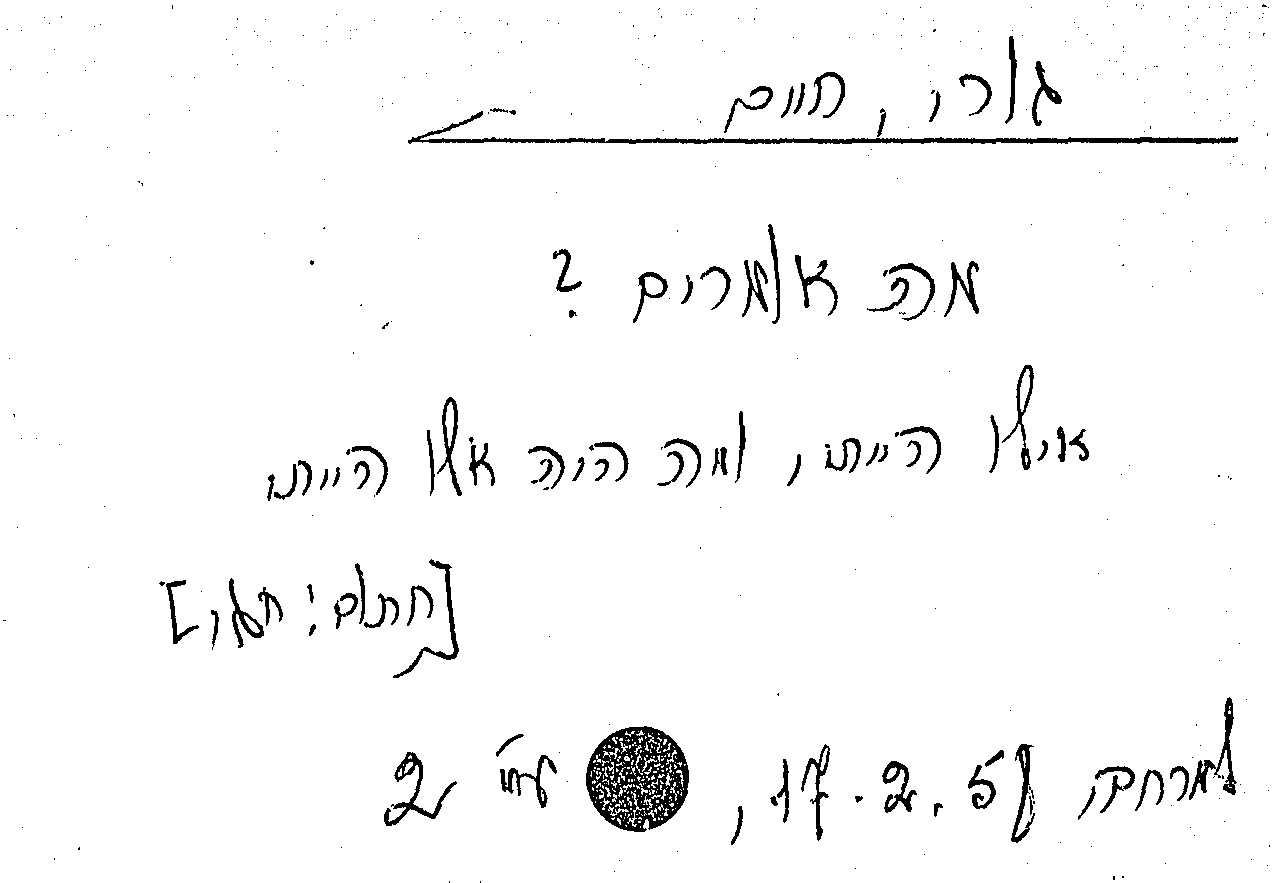 גורי, חיים
מה אומרים ?
אילו הייתי, ומה היה אלו הייתי
[חתום: חגי]
למרחב, 17.2.58, עמ' 2